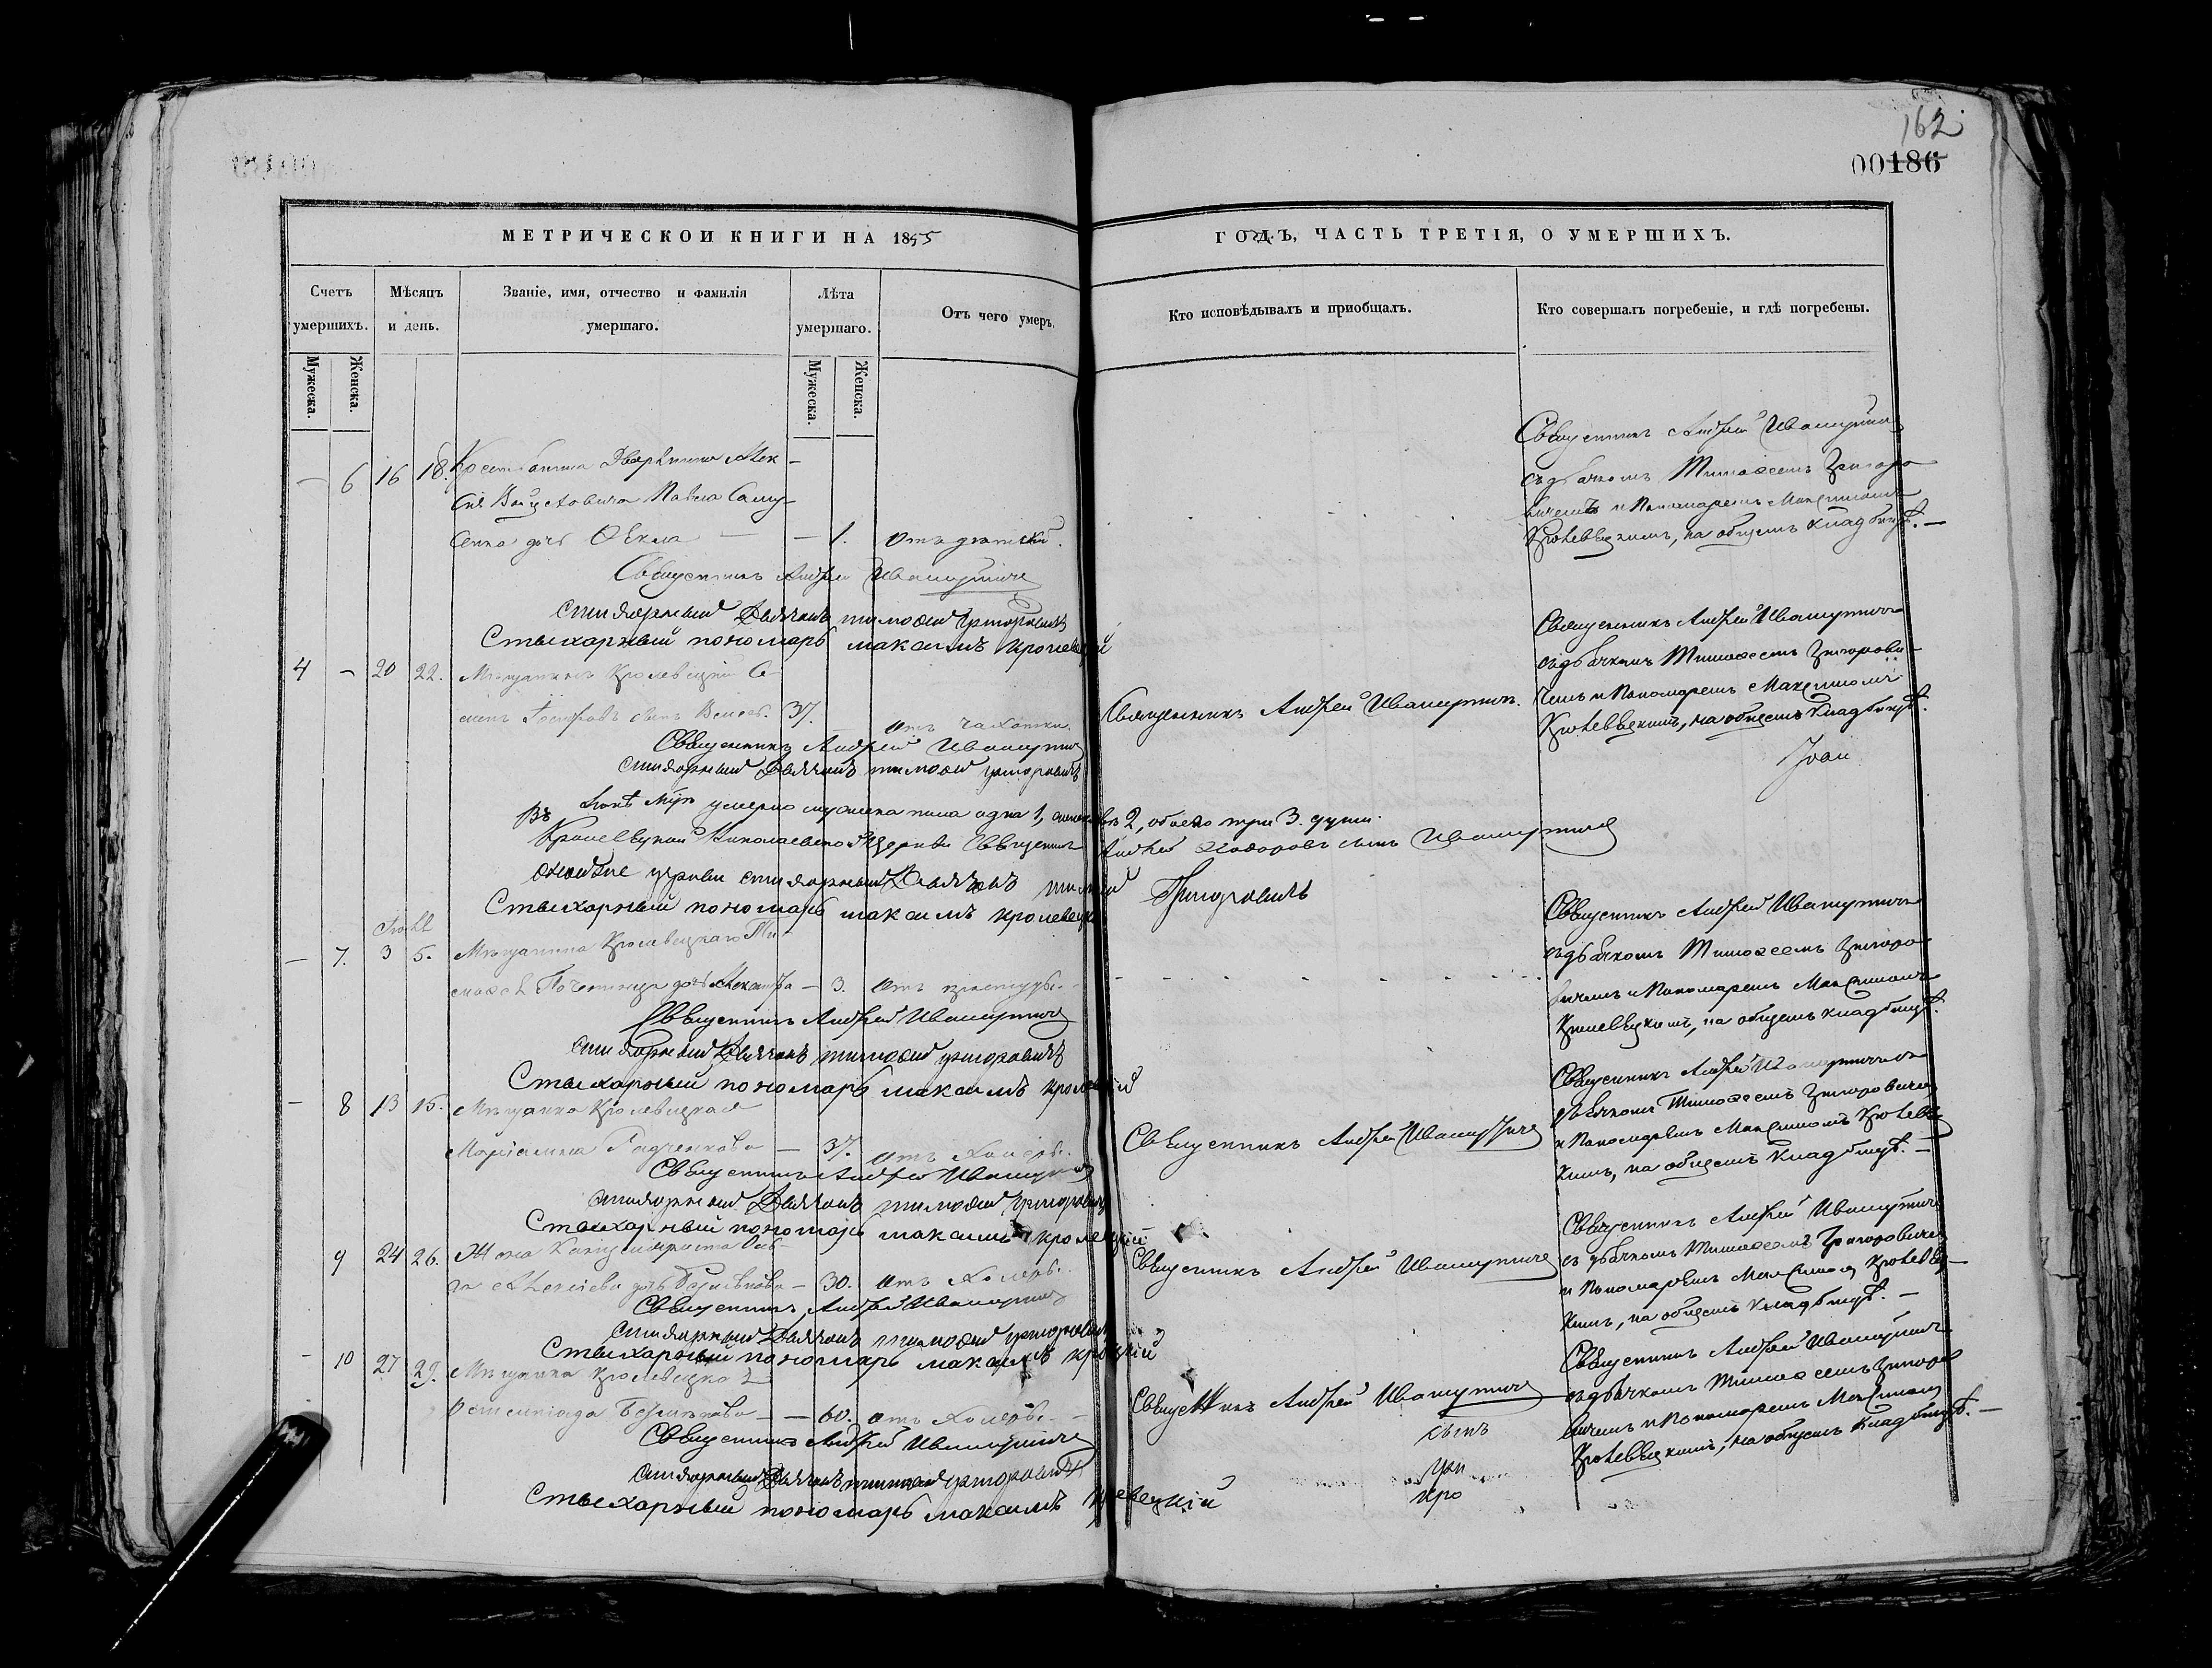 162
00186
МЕТРИЧЕСКОЙ КНИГИ НА 1855
ГОДЪ, ЧАСТЬ ТРЕТІЯ, О УМЕРШИХЪ.
Счетъ умершихъ.
Мѣсяцъ и день.
Званіе, имя, отчество и фамилія умершаго.
Лѣта умершаго.
Отъ чего умеръ.
Кто исповѣдывалъ и приобщалъ.
Кто совершалъ погребеніе, и гдѣ погребены.
Мужеска.
Женска.
Мужеска.
Женска.
— 6 16 18.
дочь Ѳекла — — 1. отъ
Священникъ Андрей Ивашутичъ
стихарный Дьячокъ тимоѳей григоровичъ
Стыхарный пономарь максимъ кролевецкій
Священникъ Андрей Ивашутичъ
съ дьячкомъ Тимоѳеемъ Григоро
вичемъ и Пономаремъ Максимомъ
Кролевецкимъ, на общемъ кладбищѣ. —
4 — 20 22. Мѣщанинъ Кролевецкій
37. отъ чахотки.
Священникъ Андрей Ивашутичъ.
Священникъ Андрей Ивашутичъ
стихарный Дьячокъ тимоѳей григоровичъ
Священникъ Андрей Ивашутичъ
съ дьячкомъ Тимоѳеемъ Григорови
чемъ и Пономаремъ Максимомъ
Кролевецкимъ, на общемъ кладбищѣ.
Въ Іюнѣ умерло мужеска пола одна 1, женска 2, обоего три 3. души.
Кролевецкой Николаевской Церкви Священникъ Андрей Ѳеодоровъ сынъ Ивашутичъ
церкви стихарный Дьячокъ тимоѳей Григоровичъ
Стыхарный пономарь максимъ кролевецкій
— 7. 3 5. Мѣщанина Кролевецкаго Ти-
моѳея дочь Александра — 3. отъ простуды.
Священникъ Андрей Ивашутичъ
стихарный Дьячокъ тимоѳей григоровичъ
Стыхарный пономарь максимъ кролевецкій
Священникъ Андрей Ивашутичъ
съ дьячкомъ Тимоѳеемъ Григоро
вичемъ и Пономаремъ Максимомъ
Кролевецкимъ, на общемъ кладбищѣ.
— 8 13 15. Мѣщанка Кролевецкая
— 37. отъ холеры.
Священникъ Андрей Ивашутичъ
Священникъ Андрей Ивашутичъ
стихарный Дьячокъ тимоѳей григоровичъ
Стыхарный пономарь максимъ кролевецкій
Священникъ Андрей Ивашутичъ съ
дьячкомъ Тимоѳеемъ Григоровичемъ
и Пономаремъ Максимомъ Кролевец
кимъ, на общемъ кладбищѣ. —
9 24 26. Жена
дочь — 30. отъ холеры.
Священникъ Андрей Ивашутичъ
Священникъ Андрей Ивашутичъ
стихарный Дьячокъ тимоѳей григоровичъ
Стыхарный пономарь максимъ кролевецкій
Священникъ Андрей Ивашутичъ
съ дьячкомъ Тимоѳеемъ Григоровичемъ
и Пономаремъ Максимомъ Кролевец—
кимъ, на общемъ кладбищѣ. —
— 10 27 29. Мѣщанка Кролевецкая
— — 60. отъ холеры. —
Священникъ Андрей Ивашутичъ
сынъ
Священникъ Андрей Ивашутичъ
стихарный Дьячокъ тимоѳей григоровичъ
Стыхарный пономарь максимъ кролевецкій
Священникъ Андрей Ивашутичъ
съ дьячкомъ Тимоѳеемъ Григоро
вичемъ и Пономаремъ Максимомъ
Кролевецкимъ, на общемъ кладбищѣ. —
гри
кро